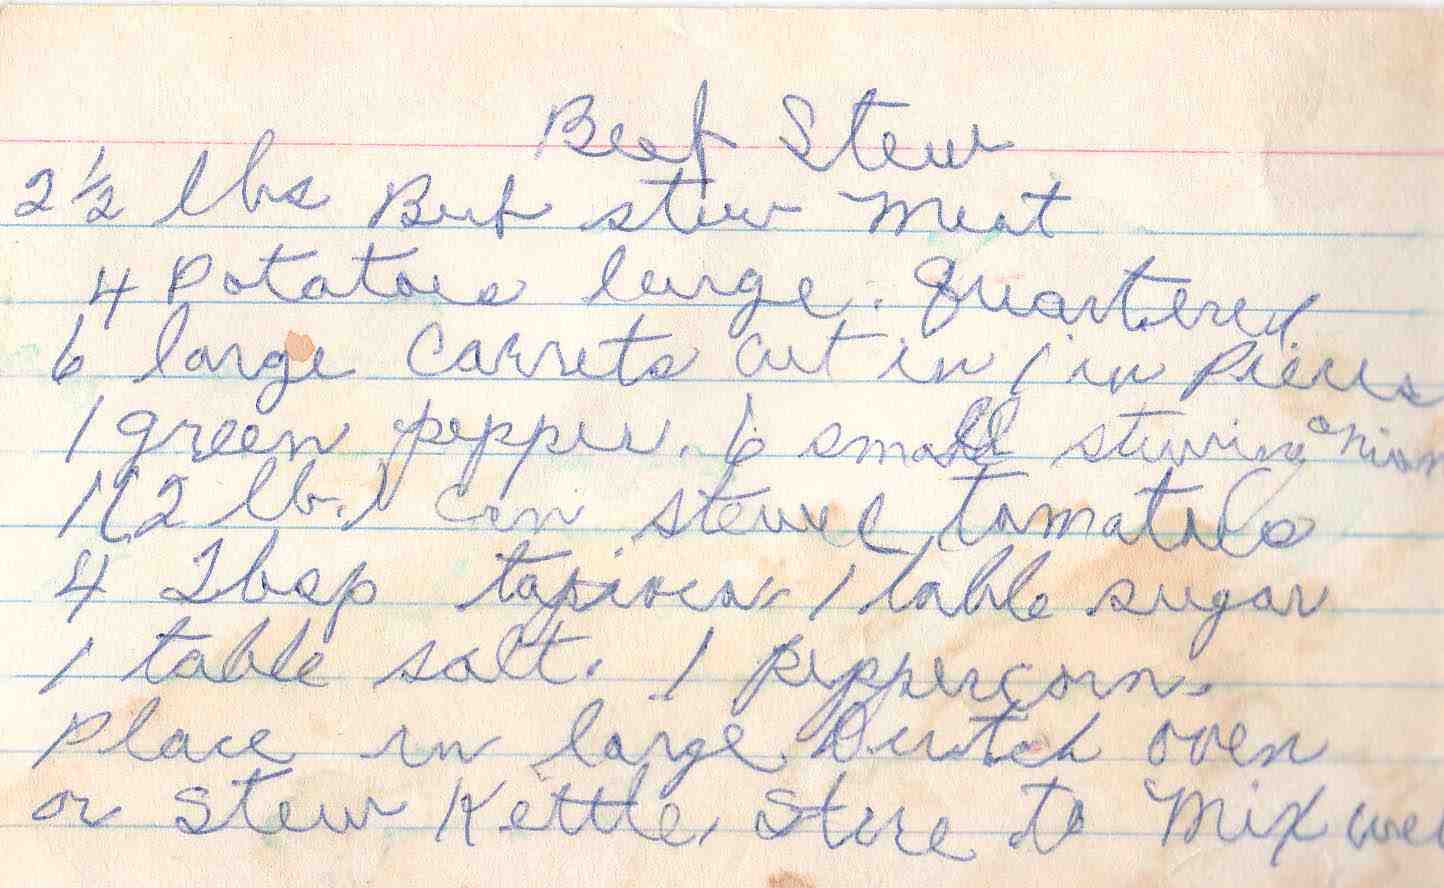 Beef Stew
2 1/2 lbs Beef stew meat
4 Potatoes large. Quartered
6 large Carrets cut in 1 in Pieces
1 green pepper. 6 small stewing onion
1 (2 lb.) can stewed tomatoes
4 Tbsp tapioca 1 table sugar
1 table salt. 1 peppercorn.
Place in large Dutch oven
or Stew Kettle, Stire to Mix wel